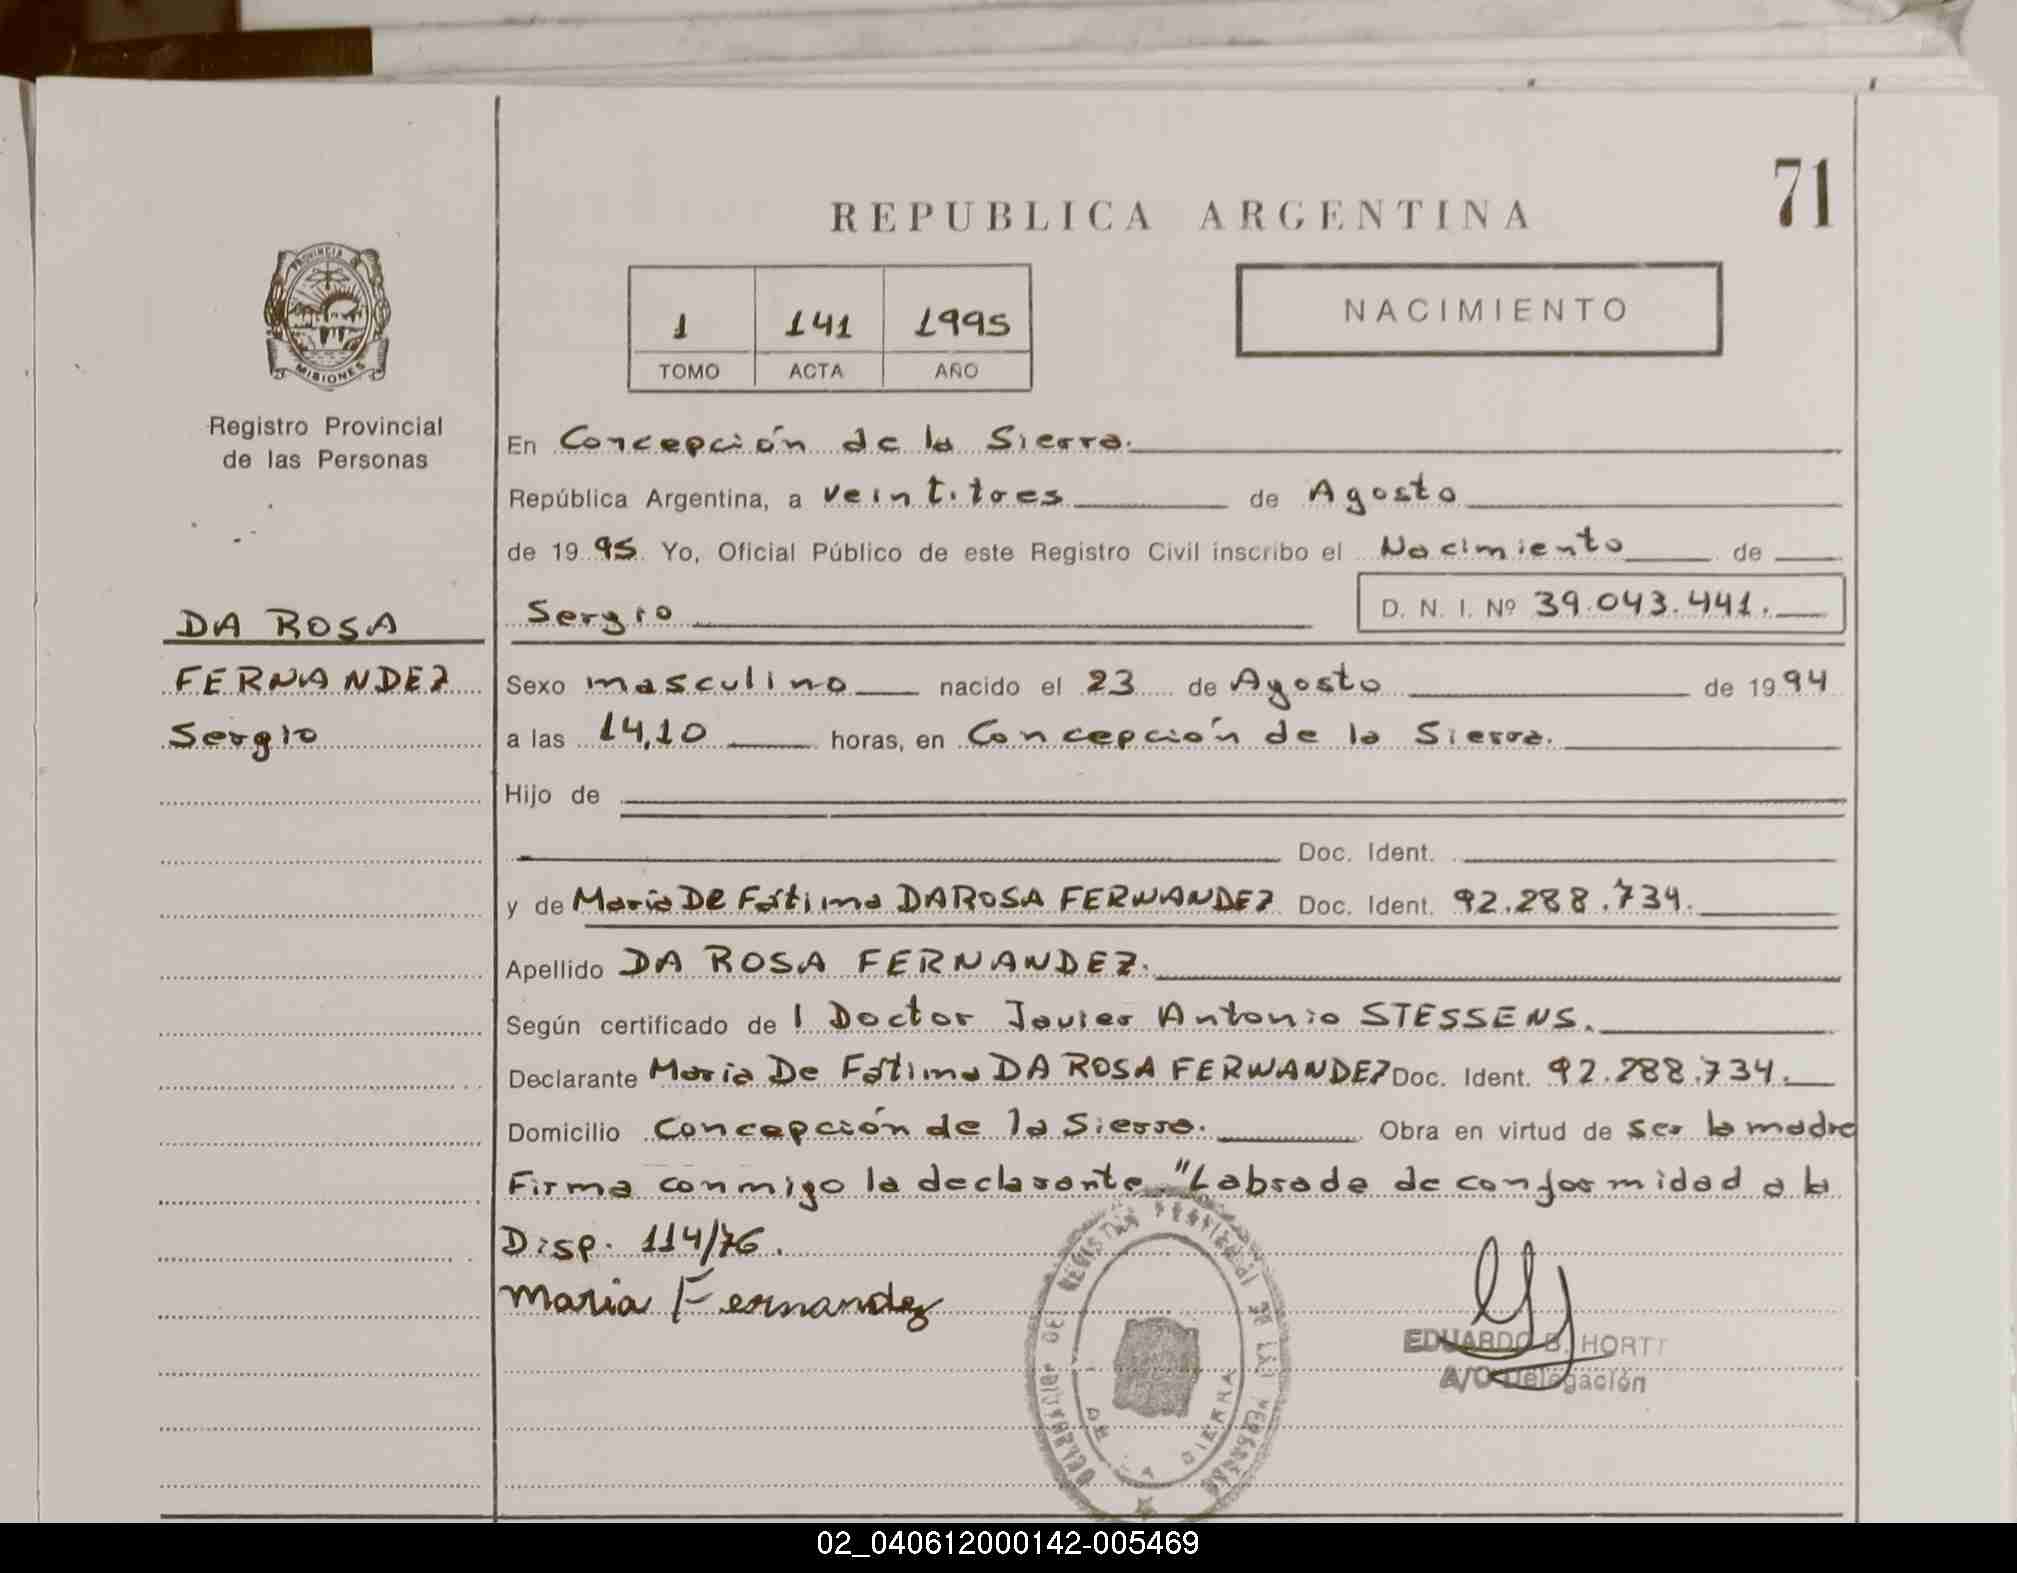 71
REPUBLICA ARGENTINA
PROVINCIA DE
MISIONES
Registro Provincial
de las Personas
1 141 1995
TOMO ACTA AÑO
NACIMIENTO
En Concepción de la Sierra.
República Argentina, a veintitres de Agosto
de 1995 Yo, Oficial Público de este Registro Civil inscribo el Nacimiento de
Sergio D. N. I. Nº 39.043.441.
DA ROSA
FERNANDEZ
Sergio
Sexo masculino nacido el 23 de Agosto de 1994
a las 14,10 horas, en Concepción de la Sierra.
Hijo de
Doc. Ident.
y de Maria De Fátima DA ROSA FERNANDEZ Doc. Ident. 92.288.734.
Apellido DA ROSA FERNANDEZ.
Según certificado del Doctor Javier Antonio STESSENS.
Declarante Maria De Fátima DA ROSA FERNANDEZ Doc. Ident. 92.288.734.
Domicilio Concepción de la Sierra. Obra en virtud de ser la madre
Firma conmigo la declarante "Labrada de conformidad a la
Disp. 114/76.
Maria Fernandez
DEL REGISTRO PROVINCIAL DE LAS PERSONAS
DE LA SIERRA
EDUARDO B. HORT
A/C Delegación
02_040612000142-005469